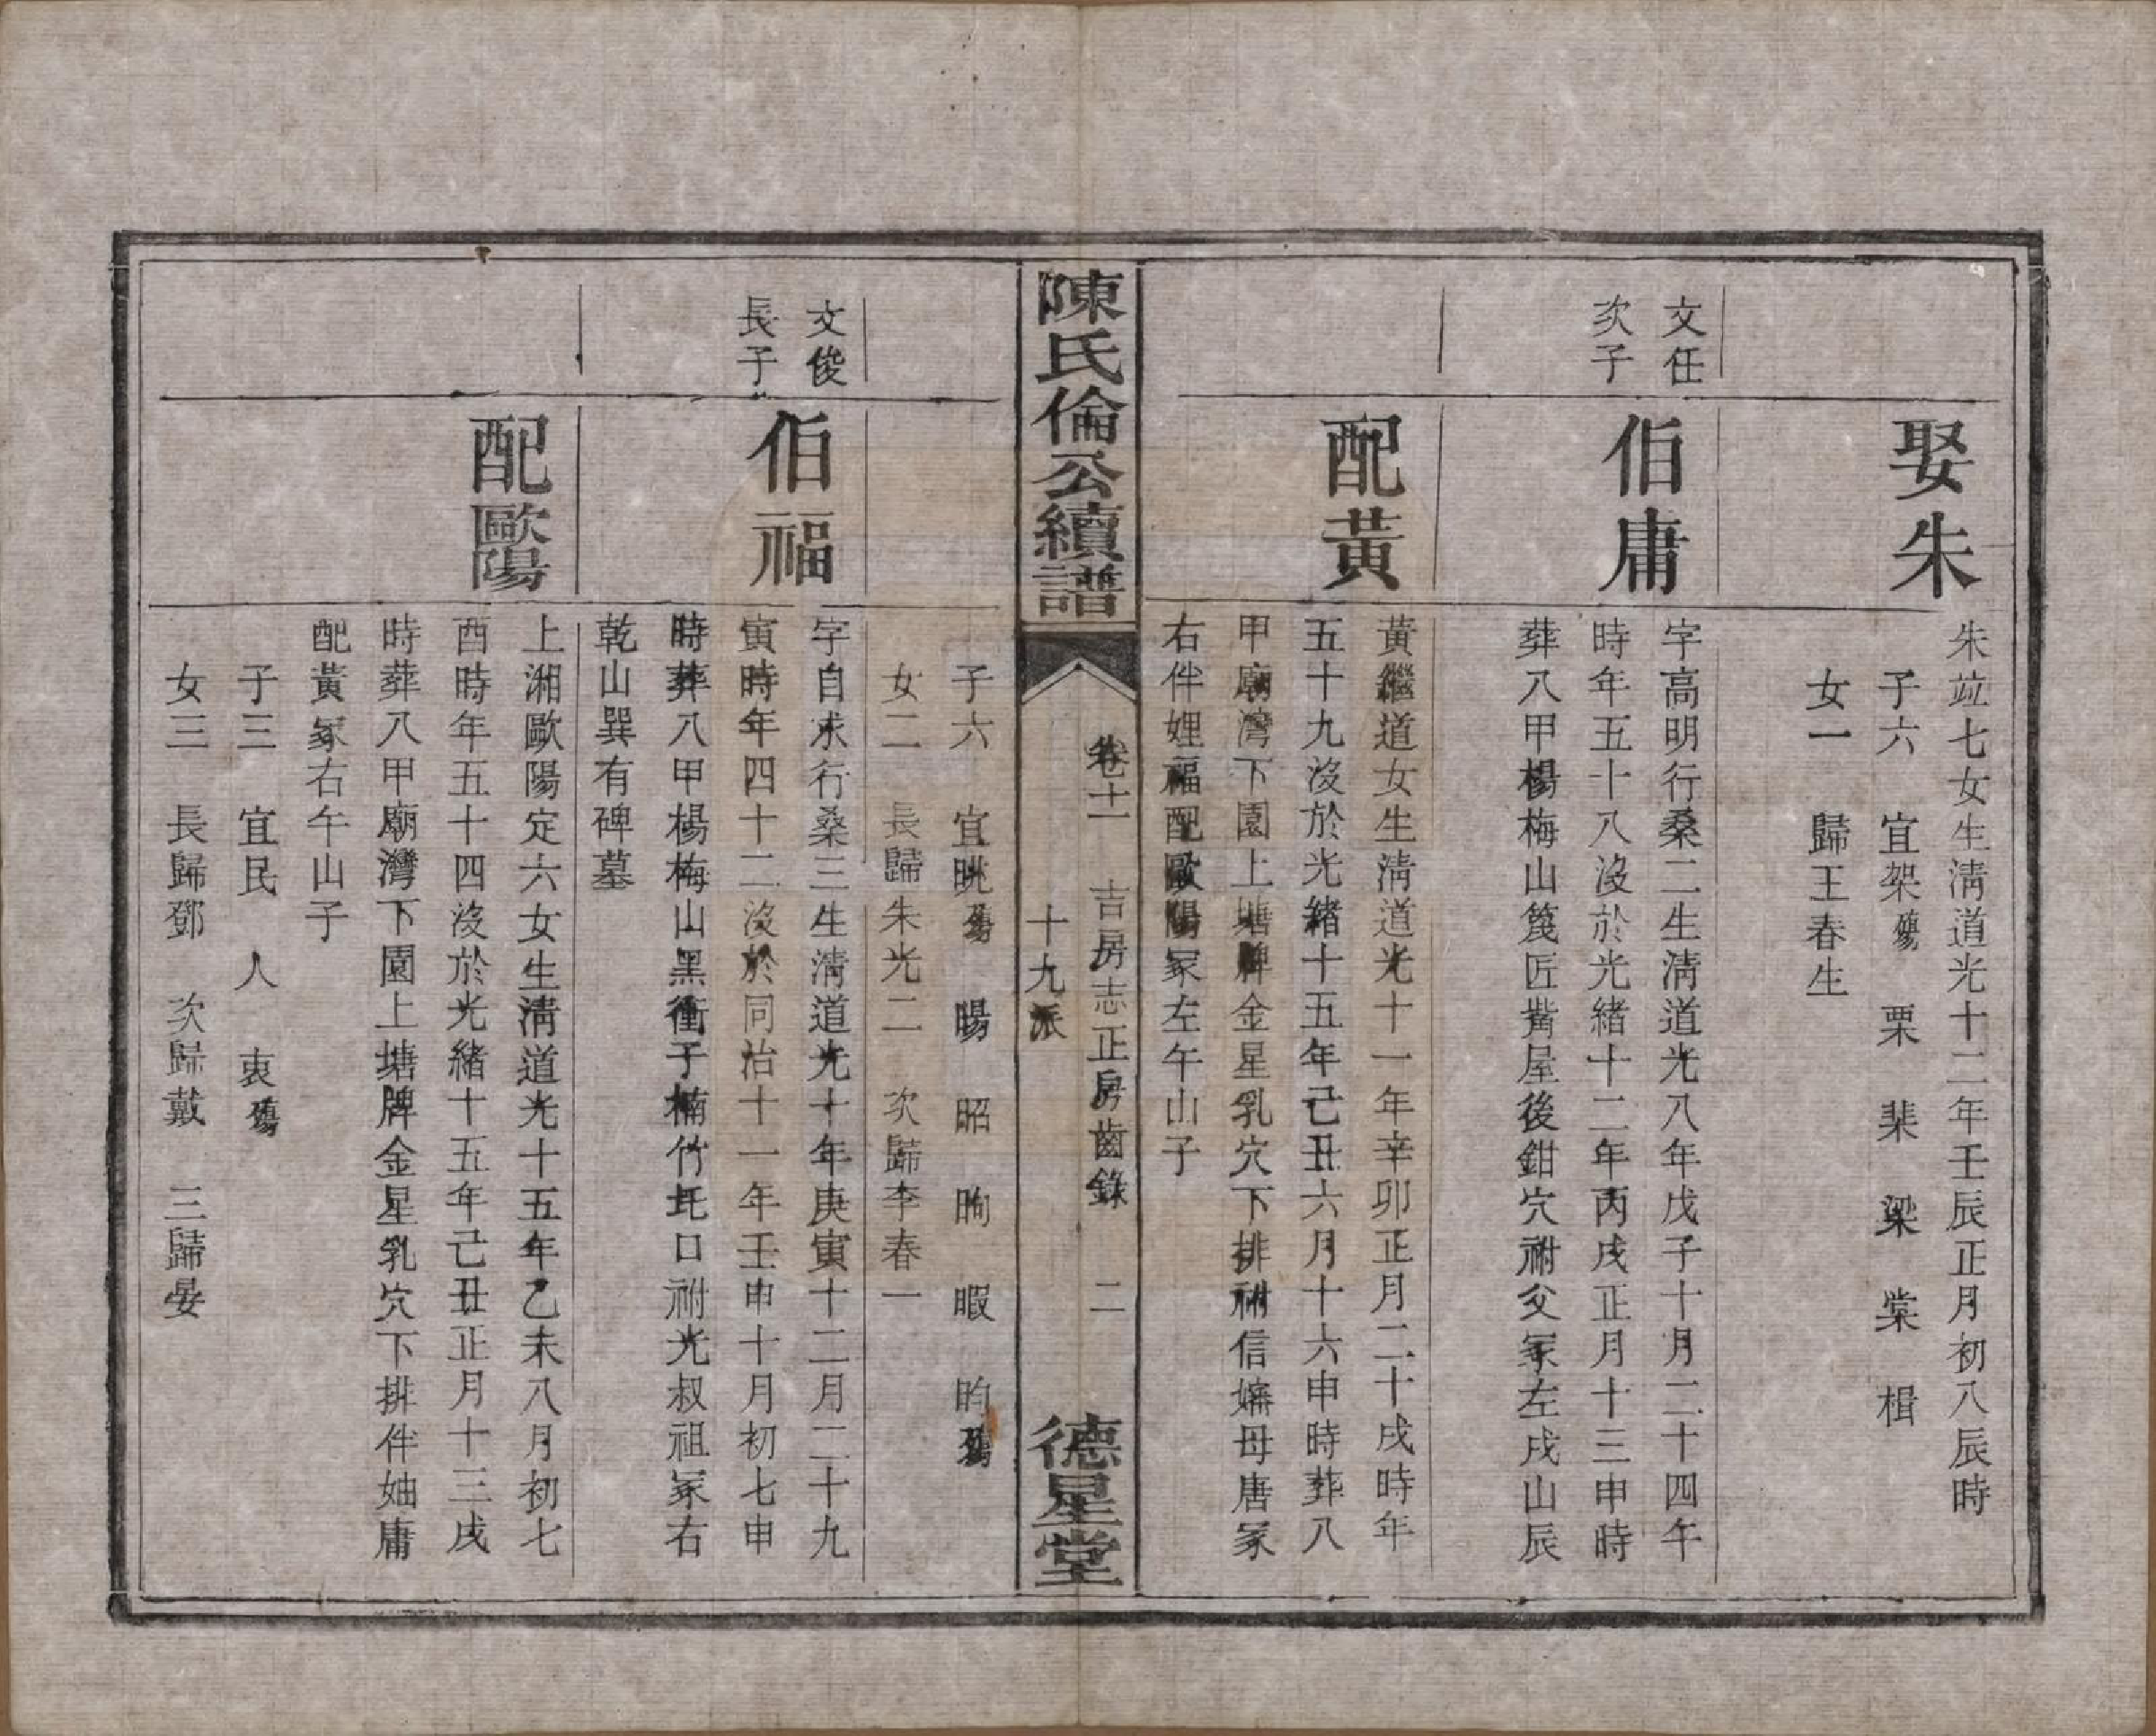 娶朱
朱竝七女生淸道光十二年壬辰正月初八辰時
子六　宜架殤　栗　棐　梁　棠　楫
女一　歸王春生
文任
次子
伯庸
字高明行桑二生淸道光八年戊子十月二十四午
時年五十八沒於光緒十二年丙戌正月十三申時
葬八甲楊梅山篾匠觜屋後鉗穴祔父冢左戌山辰
配黃
黃繼道女生淸道光十一年辛卯正月二十戌時年
五十九沒於光緒十五年己丑六月十六申時葬八
甲廟灣下園上塘牌金星乳穴下排祔信嬸母唐冢
右伴娌福配歐陽冢左午山子
陳氏倫公續譜
卷十一　吉房志正房齒錄　二
十九派
德星堂
子六　宜晀殤　暘　昭　昫　暇　昀殤
女二　長歸朱光二　次歸李春一
文俊
長子
伯福
字自求行桑三生淸道光十年庚寅十二月二十九
寅時年四十二沒於同治十一年壬申十月初七申
時葬八甲楊梅山黑衝子楠竹圫口祔光叔祖冢右
乾山巽有碑墓
配歐陽
上湘歐陽定六女生淸道光十五年乙未八月初七
酉時年五十四沒於光緒十五年己丑正月十三戌
時葬八甲廟灣下園上塘牌金星乳穴下排伴妯庸
配黃冢右午山子
子三　宜民　人　衷殤
女三　長歸鄧　次歸戴　三歸晏